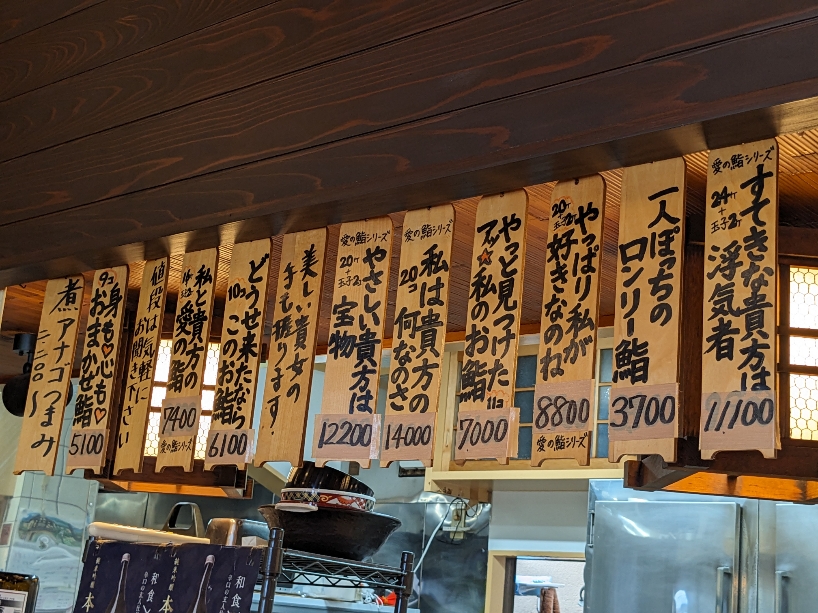 愛の鮨シリーズ
24ケ
+
玉子2ケ
すてきな貴方は
浮気者
11700
一人ぽっちの
ロンリー鮨
3700
20ケ
+
玉子2ケ
やっぱり私が
好きなのね
8800
愛の鮨シリーズ
やっと見つけた
アッ★私のお鮨
11コ
7000
愛の鮨シリーズ
20コ
私は貴方の
何なのさ
14000
愛の鮨シリーズ
20ケ
+
玉子2ケ
やさしい貴方は
宝物
12200
美しい貴女の
手も握ります.
どうせ来たなら
10コ
このお鮨
6100
私と貴方の
愛の鮨
7400
愛の鮨シリーズ
値段は気軽に
お聞き下さい
9コ
身も♡心も♡
おまかせ鮨
5100
煮アナゴつまみ
二二〇〇〜
和食
純米吟醸
本
和食
純米吟醸
本